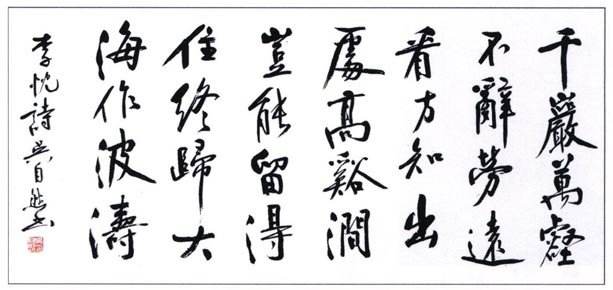 千巖萬壑
不辭勞遠
看方知出
處高谿澗
豈能留得
住終歸大
海作波濤
李忱詩